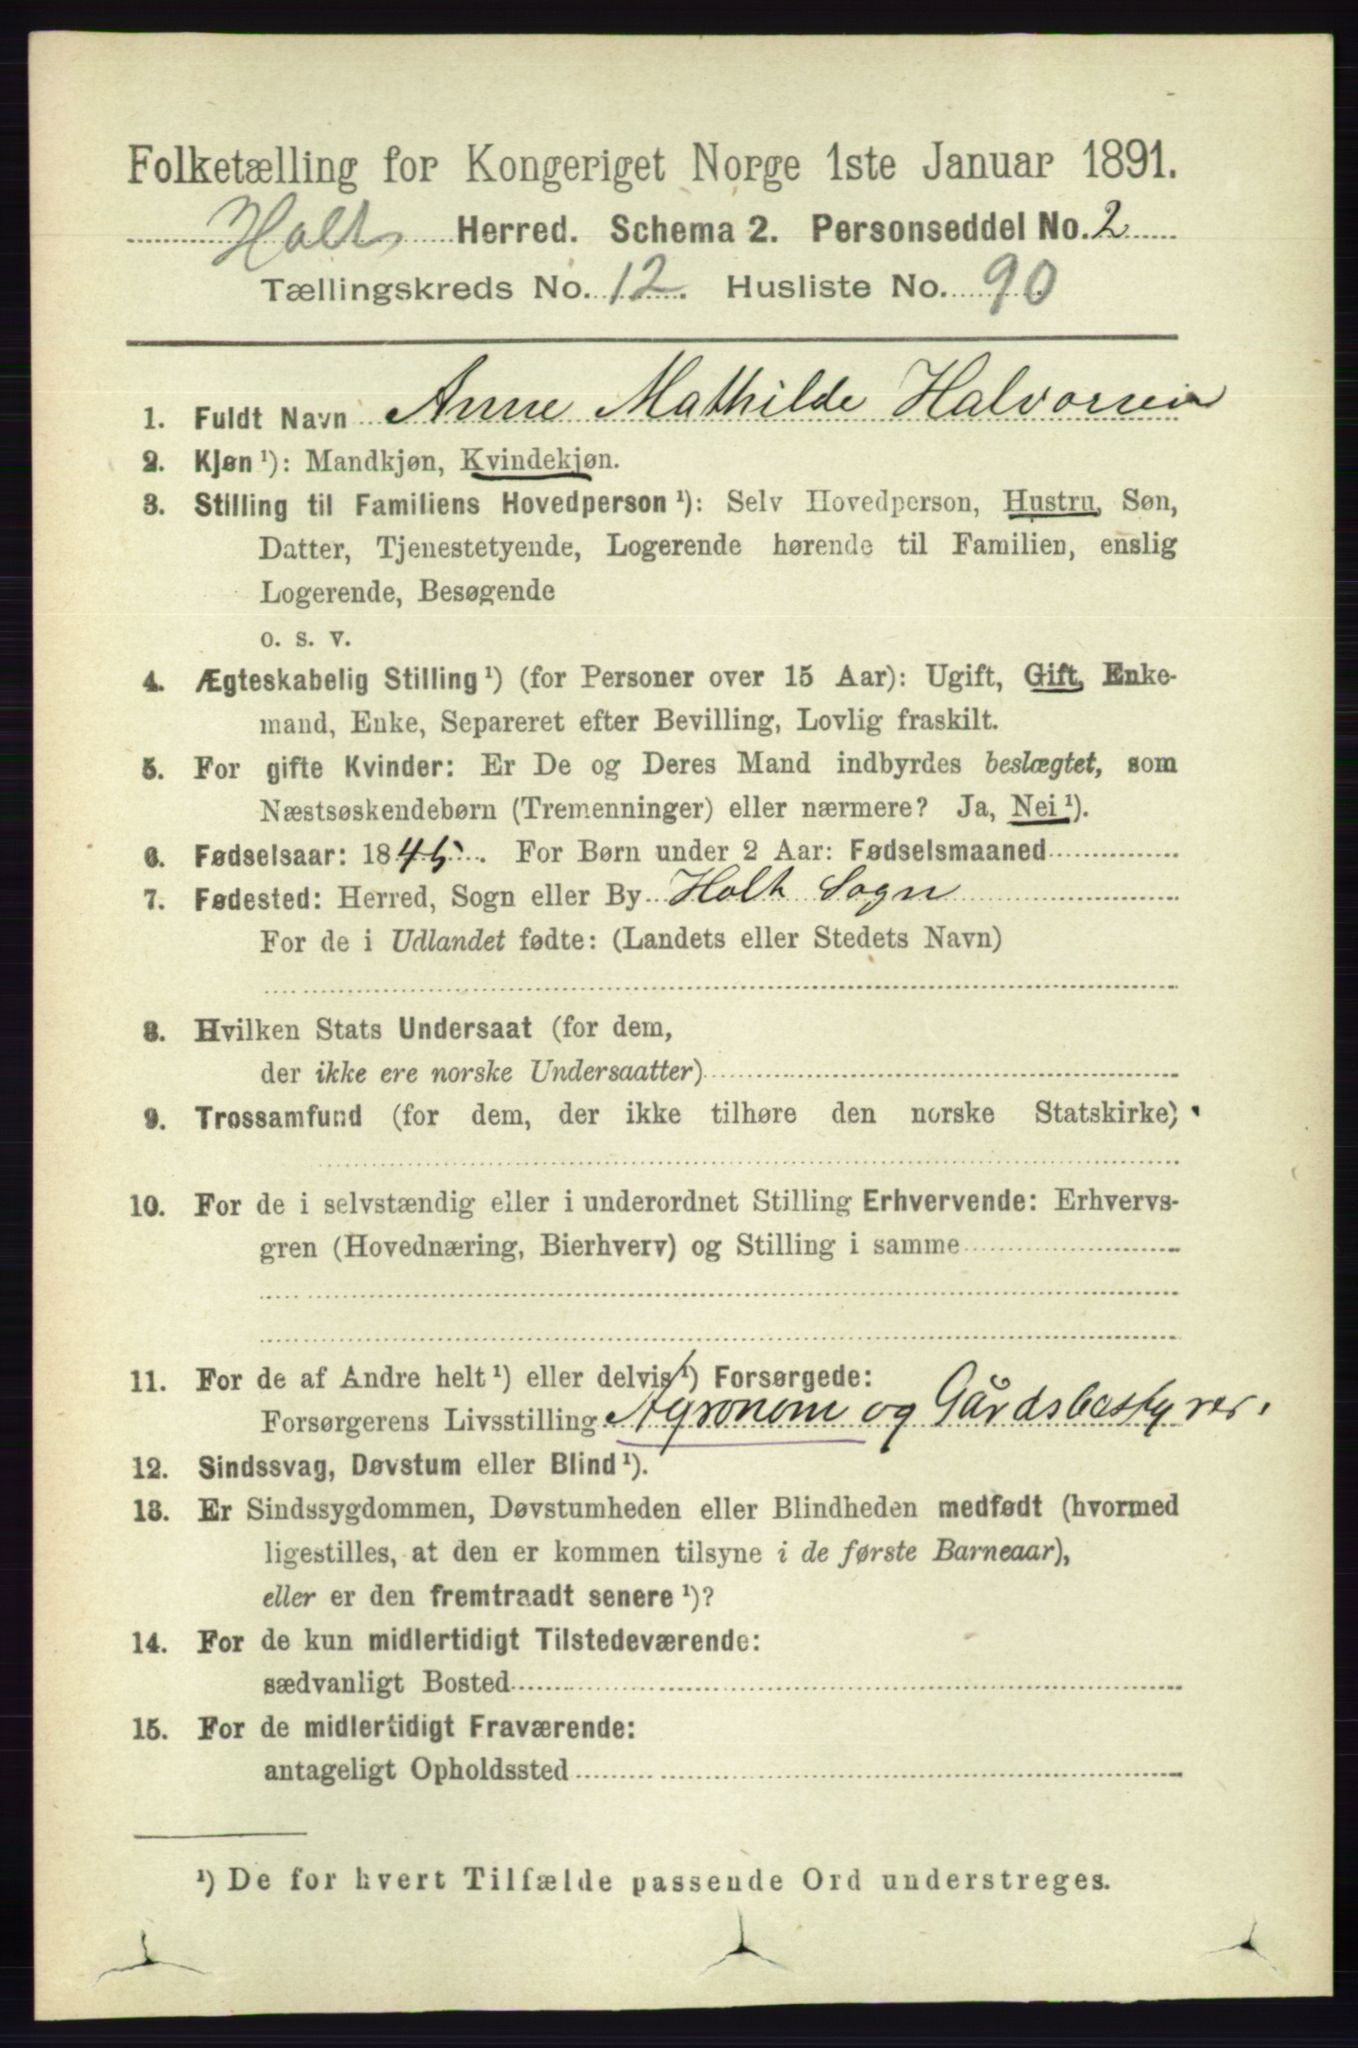 Folketælling for Kongeriget Norge 1ste Januar 1891.
Holt Herred. Schema 2. Personseddel No. 2
Tællingskreds No. 12. Husliste No. 90
1. Fuldt Navn Anne Mathilde Halvorsen
2. Kjøn ¹): Mandkjøn, Kvindekjøn.
3. Stilling til Familiens Hovedperson ¹): Selv Hovedperson, Hustru, Søn,
Datter, Tjenestetyende, Logerende hørende til Familien, enslig
Logerende, Besøgende
o. s. v.
4. Ægteskabelig Stilling ¹) (for Personer over 15 Aar): Ugift, Gift, Enke-
mand, Enke, Separeret efter Bevilling, Lovlig fraskilt.
5. For gifte Kvinder: Er De og Deres Mand indbyrdes beslægtet, som
Næstsøskendebørn (Tremenninger) eller nærmere? Ja, Nei ¹).
6. Fødselsaar: 1845. For Børn under 2 Aar: Fødselsmaaned
7. Fødested: Herred, Sogn eller By Holt Sogn
For de i Udlandet fødte: (Landets eller Stedets Navn)
8. Hvilken Stats Undersaat (for dem,
der ikke ere norske Undersaatter)
9. Trossamfund (for dem, der ikke tilhøre den norske Statskirke)
10. For de i selvstændig eller i underordnet Stilling Erhvervende: Erhvervs-
gren (Hovednæring, Bierhverv) og Stilling i samme
11. For de af Andre helt ¹) eller delvis ¹) Forsørgede:
Forsørgerens Livsstilling Agronom og Gårdsbestyrer.
12. Sindssvag, Døvstum eller Blind ¹).
13. Er Sindssygdommen, Døvstumheden eller Blindheden medfødt (hvormed
ligestilles, at den er kommen tilsyne i de første Barneaar),
eller er den fremtraadt senere ¹)?
14. For de kun midlertidigt Tilstedeværende:
sædvanligt Bosted
15. For de midlertidigt Fraværende:
antageligt Opholdssted
¹) De for hvert Tilfælde passende Ord understreges.